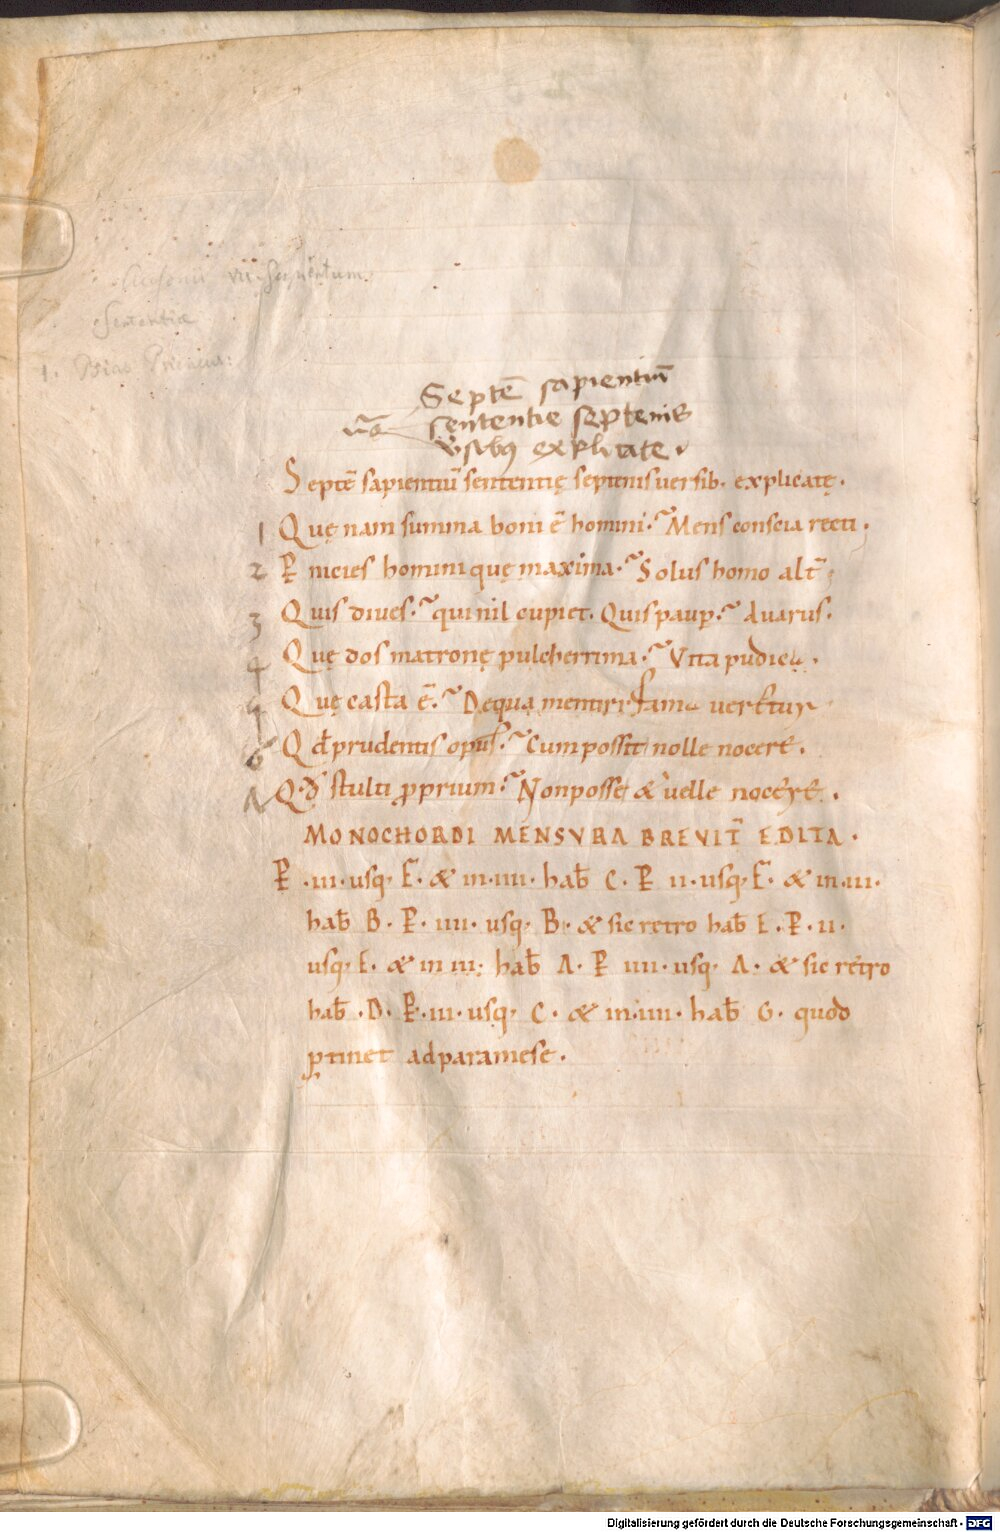 Ausonii VII. Sapientum
Sententiæ
1. Bias Prieneus:
Septē sapientiū
sententie septenis
v̄sibꝰ explicate.
Septē sapientiū sententię septenis versib. explicatę.
1 Quę nam summa boni ē homini. Mens conscia recti.
2 P̲nicies homini quę maxima. Solus homo alt̄;
3 Quis dives. qui nil cupiet. Quis paup̲. Avarus.
4 Quę dos matronę pulcherrima. Vita pudica.
5 Quę casta ē. De qua mentiri fama veretur
6 Qd̄ prudentis opus. Cum possit nolle nocere.
7 Q.d̄ stulti p̲prium. Non posse & velle nocere.
MONOCHORDI MENSVRA BREVIT̄ EDITA.
P̲ .III. usq; F. & in .IIII. hab̄ C. P̲ II. usq; F. & in .III.
hab̄ B. P̲. IIII. usq; B. & sic retro hab̄ E. P̲. II.
usq; E. & in III; hab̄ A. P̲ IIII. usq; A. & sic retro
hab̄ .D. P̲. III. usq; C. & in .IIII. hab̄ G. quod
p̲tinet ad paramese.
Digitalisierung gefördert durch die Deutsche Forschungsgemeinschaft - DFG